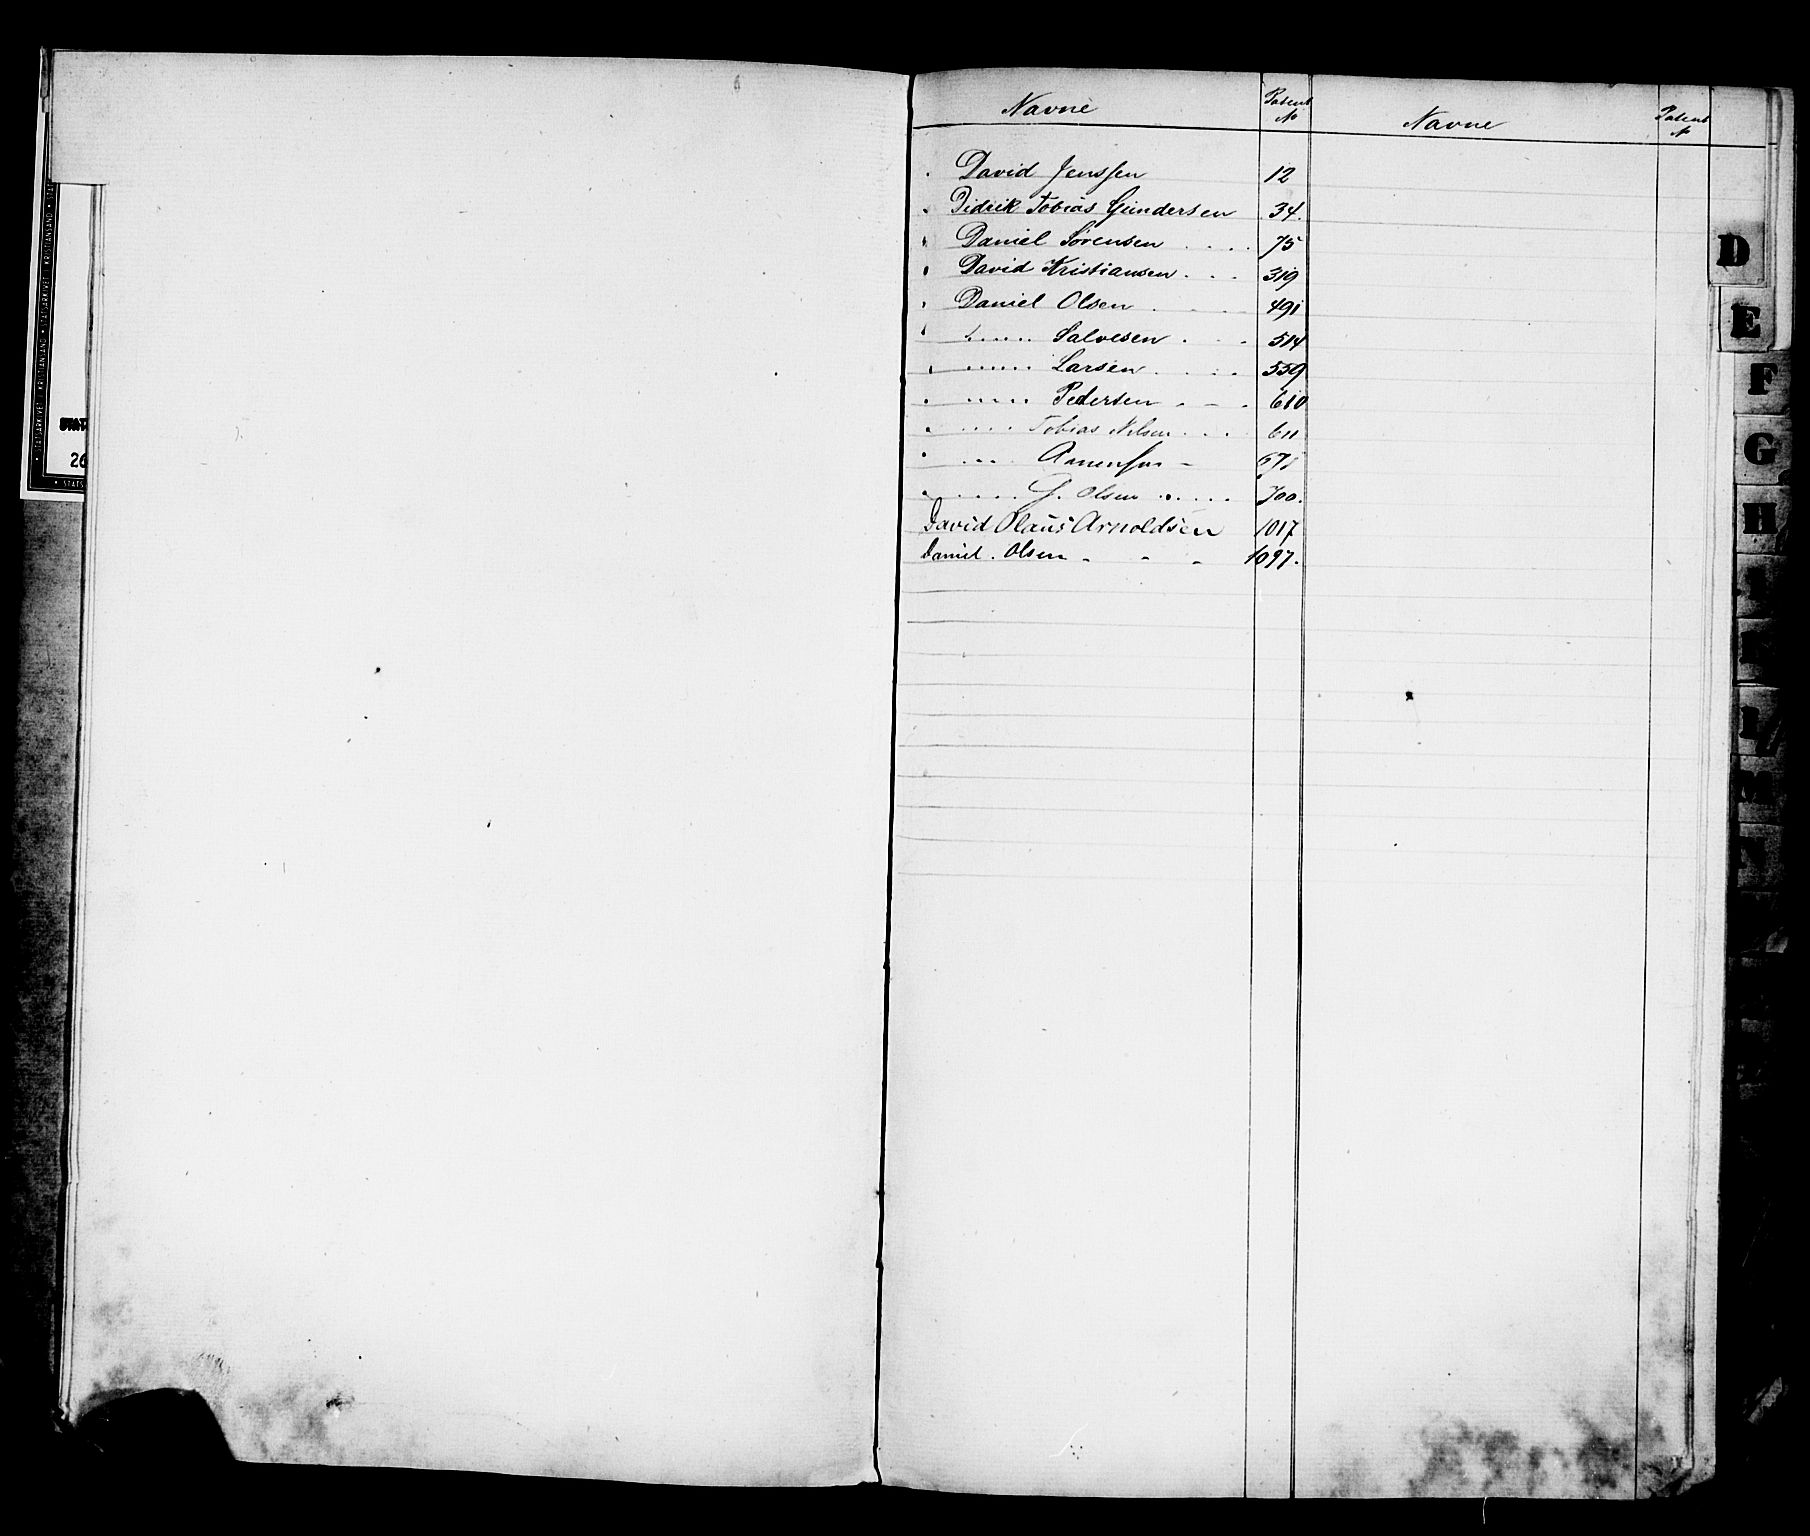 Navne Patent N
Navne Patent N
David Jenssen 12
Didrik Tobias Gundersen 34.
Daniel Sørensen . . . . 75
David Kristiansen . . . 319
Daniel Olsen . . . . 491
" ..... Salvesen . . . 514
...... Larsen . . . . 559
..... Pedersen - - . 610
.... Tobias Nilsen . . . 611
.... Aanensen -
...... Olsen . . . . . 700.
David Olaus Arnoldsen 1017
Daniel . Olsen - - - 1097.
D
E
F
G
H
26
STATSARKIVET I KRISTIANSAND